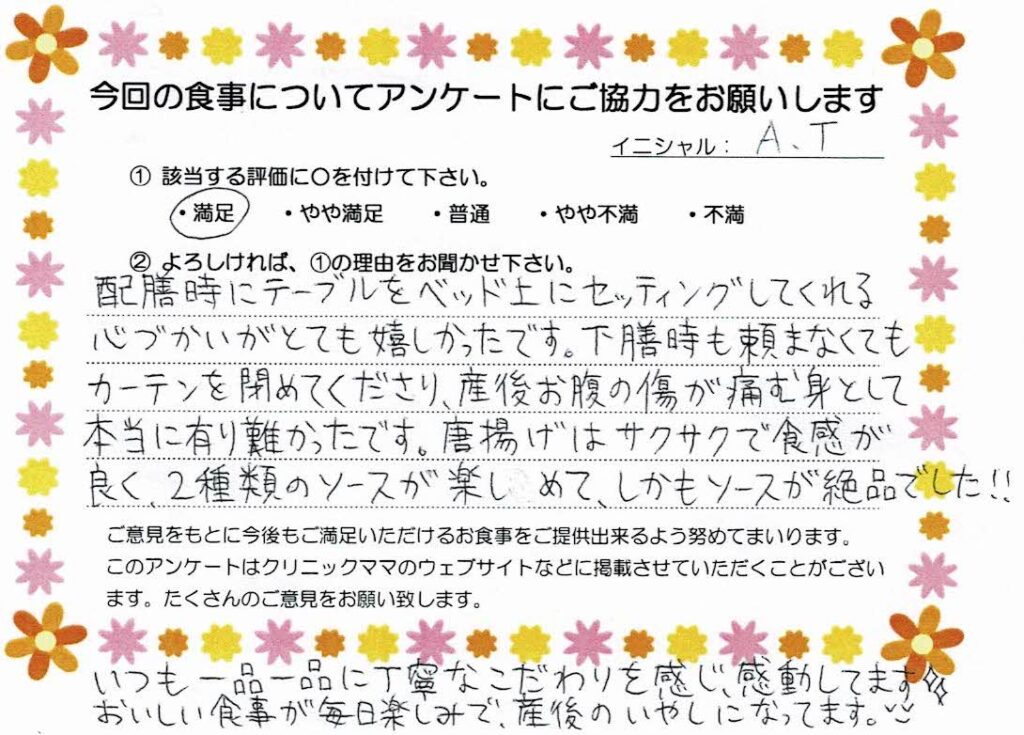 今回の食事についてアンケートにご協力をお願いします
イニシャル： A、T
① 該当する評価に○を付けて下さい。
・満足 ・やや満足 ・普通 ・やや不満 ・不満
② よろしければ、①の理由をお聞かせ下さい。
配膳時にテーブルをベッド上にセッティングしてくれる
心づかいがとても嬉しかったです。下膳時も頼まなくても
カーテンを閉めてくださり、産後お腹の傷が痛む身として
本当に有り難かったです。唐揚げはサクサクで食感が
良く、2種類のソースが楽しめて、しかもソースが絶品でした!!
ご意見をもとに今後もご満足いただけるお食事をご提供出来るよう努めてまいります。
このアンケートはクリニックママのウェブサイトなどに掲載させていただくことがござい
ます。たくさんのご意見をお願い致します。
いつも一品一品に丁寧なこだわりを感じ、感動してます
おいしい食事が毎日楽しみで、産後のいやしになってます。